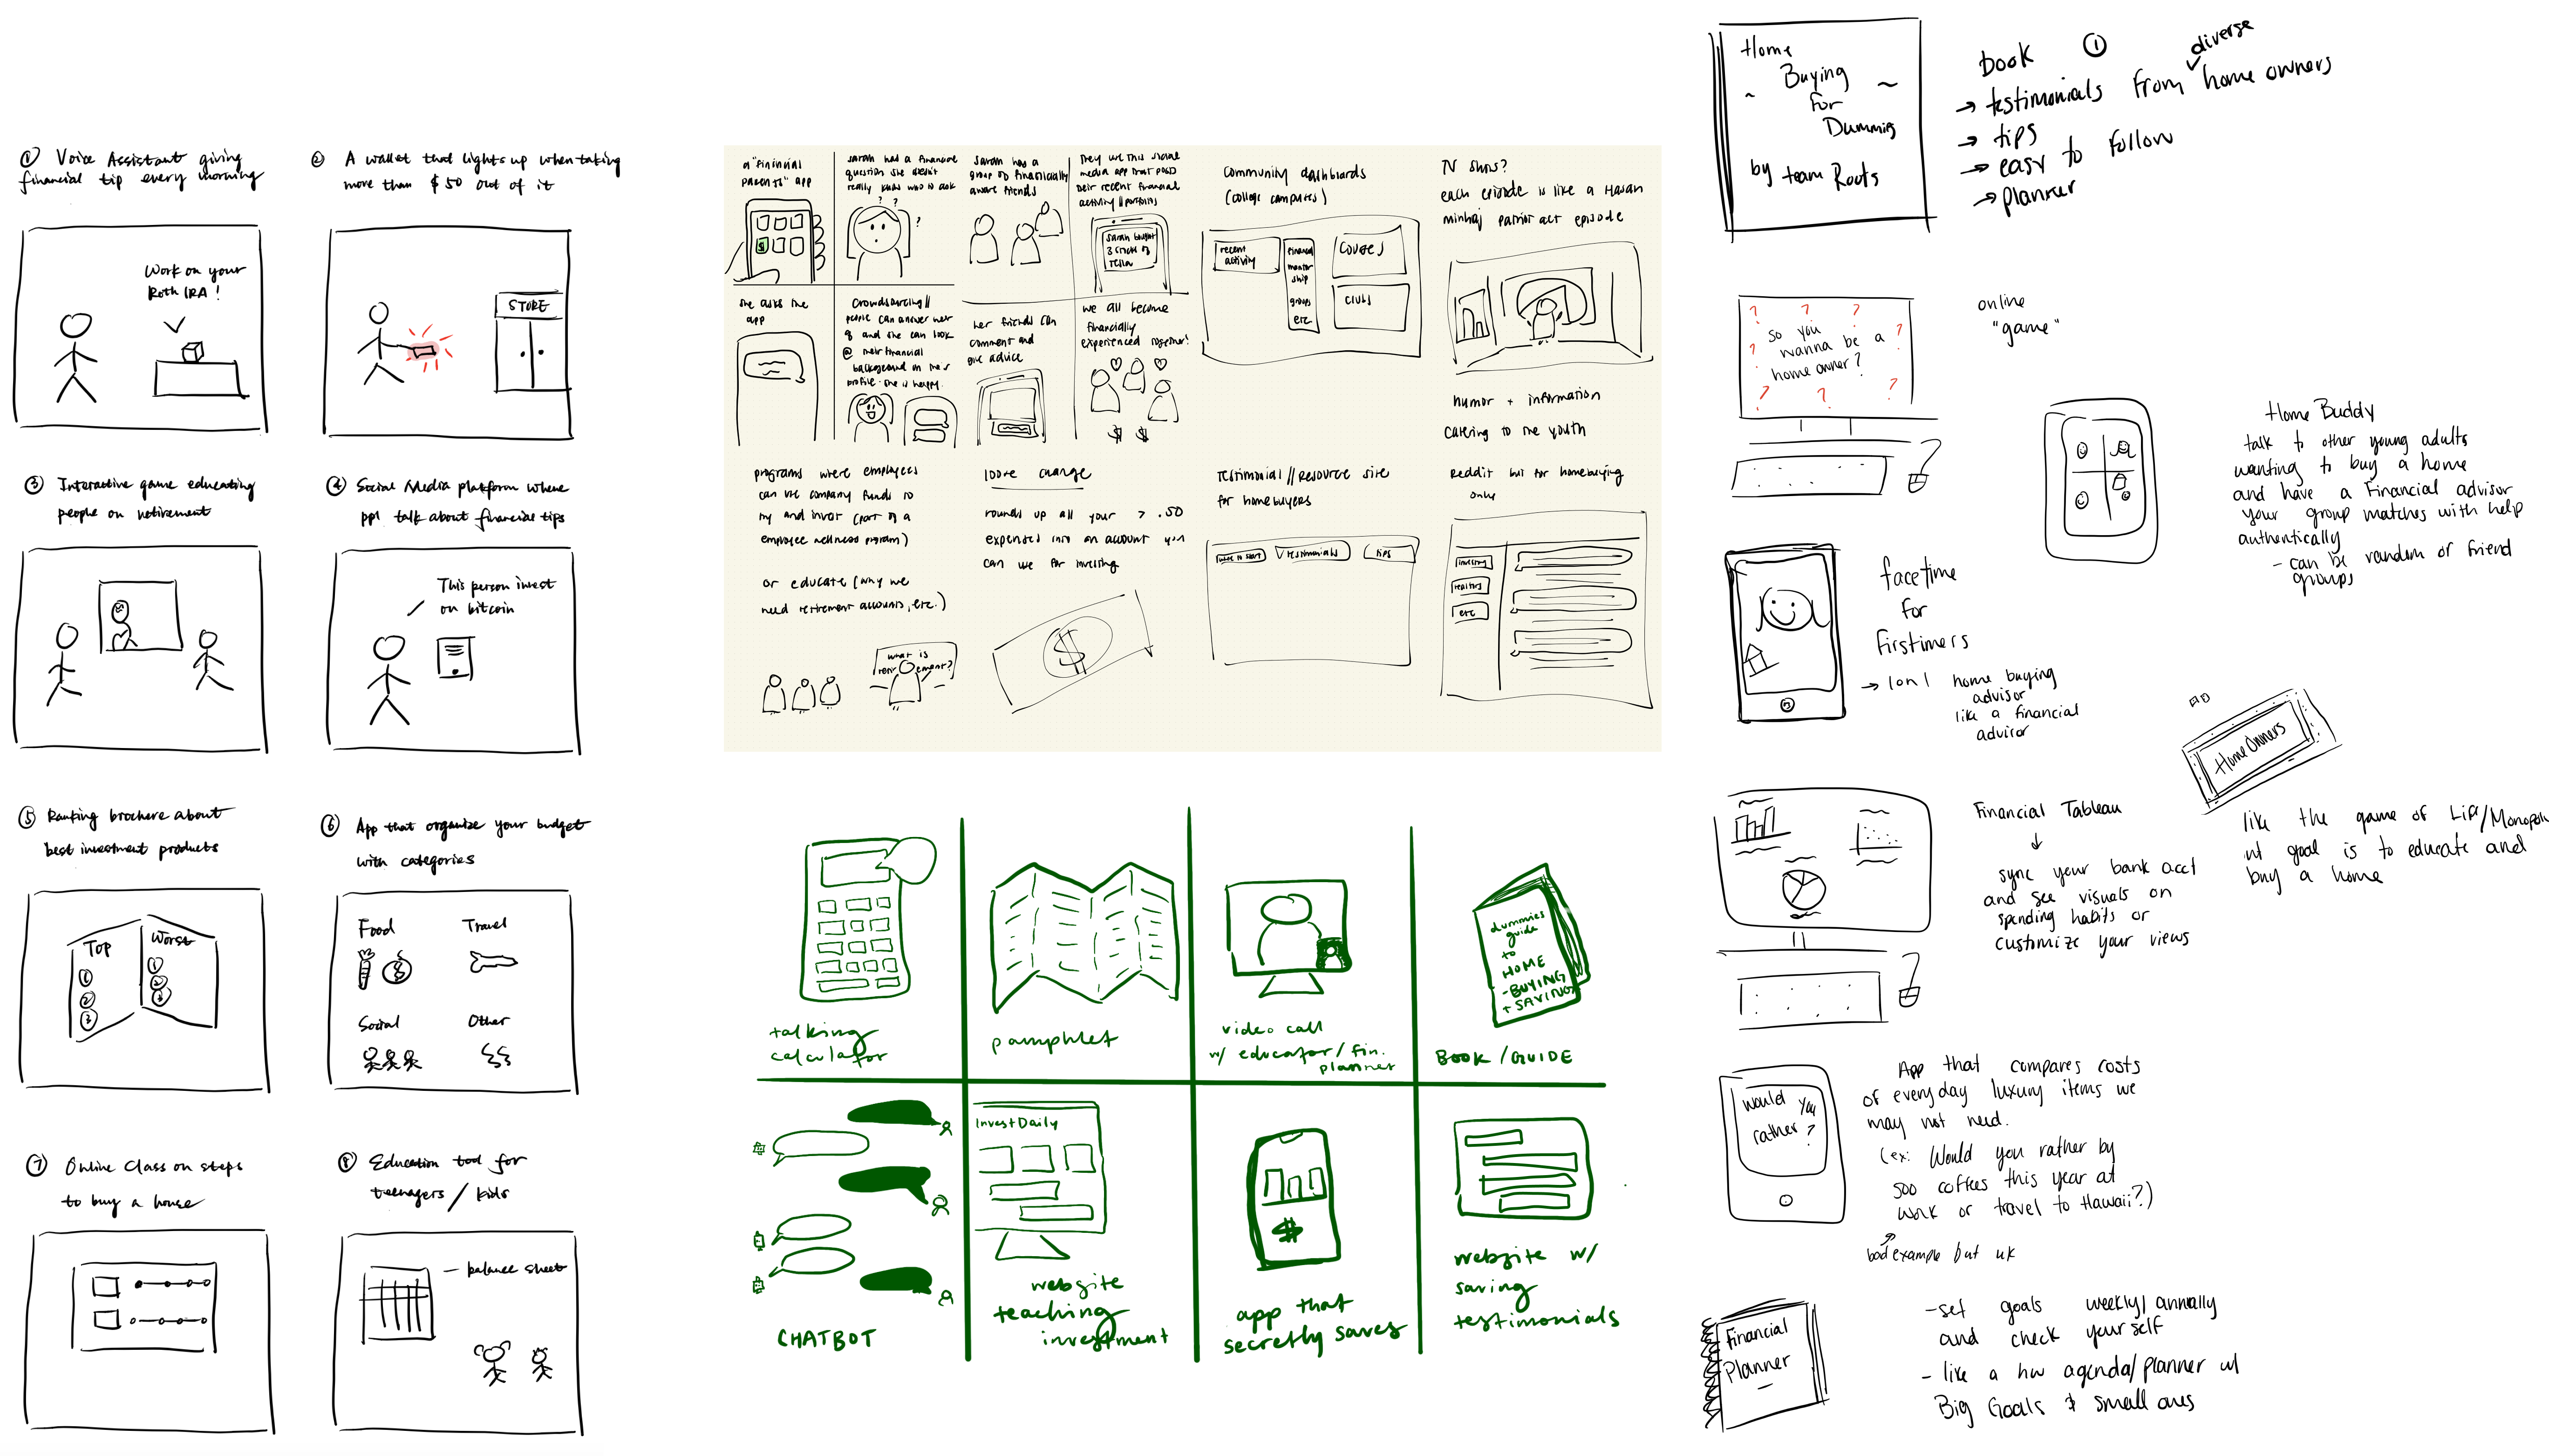 ① Voice Assistant giving
financial tip every morning
Work on your
Roth IRA !
② A wallet that lights up when taking
more than $50 out of it
STORE
③ Interactive game educating
people on retirement
④ Social Media platform where
ppl talk about financial tips
This person invest
on bitcoin
⑤ Ranking brochere about
best investment products
Top
①
②
③
Worst
①
②
③
⑥ App that organize your budget
with categories
Food
Travel
Social
Other
⑦ Online class on steps
to buy a house
⑧ Education tool for
teenagers / kids
— balance sheet
a "financial
parents" app
$
sarah has a financial
question she doesn't
really know who to ask
? ?
?
she asks the
app
crowdsourcing//
people can answer her
q and she can look
@ their financial
background on their
profile. she is happy.
sarah has a
group of financially
aware friends
they use this social
media app that posts
their recent financial
activity//portfolios
sarah bought
3 stocks of
Tesla
her friends can
comment and
give advice
we all become
financially
experienced together!
$ $
community dashboards
(college campuses)
recent
activity
financial
mentor
ship
groups
etc
courses
clubs
TV shows?
each episode is like a Hasan
minhaj patriot act episode
humor + information
catering to the youth
programs where employees
can use company funds to
try and invest (part of a
employee wellness program)
or educate (why we
need retirement accounts, etc.)
what is
retirement?
loose change
rounds up all your > .50
expenses into an account you
can use for investing
$
Testimonial // Resource site
for homebuyers
where to start
testimonials
tips
Reddit but for homebuying
only
investing
realtors
etc
talking
calculator
pamphlet
video call
w/ educator/fin.
planner
dummies
guide
to
HOME
-BUYING
+ SAVING
BOOK / GUIDE
CHATBOT
InvestDaily
website
teaching
investment
$
app that
secretly saves
website w/
saving
testimonials
Home
~ Buying ~
for
Dummies
by team Roots
book ①
→ testimonials from diverse home owners
→ tips
→ easy to follow
→ planner
? ? ?
? So you ?
? wanna be a
home owner?
? ? ?
online
"game"
Home Buddy
talk to other young adults
wanting to buy a home
and have a financial advisor
your group matches with help
authentically
- can be random or friend
groups
facetime
for
firstimers
→ 1 on 1 home buying
advisor
like a financial
advisor
Home Owners
like the game of Life/Monopoly
but goal is to educate and
buy a home
Financial Tableau
↓
sync your bank acct
and see visuals on
spending habits or
customize your views
would you
rather?
App that compares costs
of everyday luxury items we
may not need.
(ex: Would you rather by
500 coffees this year at
work or travel to Hawaii?)
bad example but uk
Financial
Planner
—
-set goals weekly/annually
and check yourself
- like a hw agenda/planner w/
Big Goals & small ones